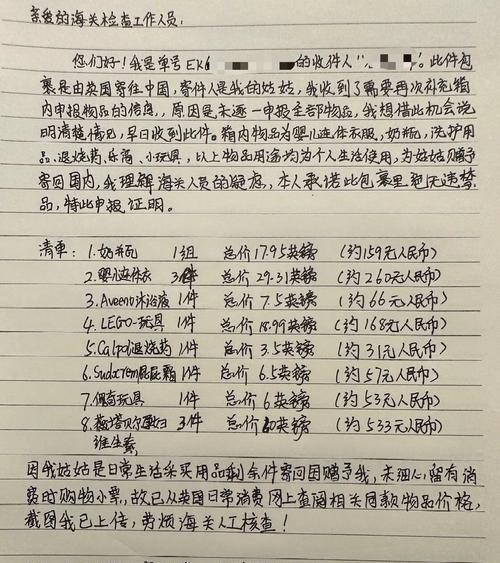 亲爱的海关检查工作人员：
您们好！我是单号EK6 的收件人" "。此件包
裹是由英国寄往中国，寄件人是我的姑姑，我收到了需要再次补充箱
内申报物品的信息，原因是未逐一申报全部物品，我想借此机会说
明清楚情况，早日收到此件。箱内物品为婴儿连体衣服，奶瓶，洗护用
品，退烧药，乐高、小玩具，以上物品用途均为个人生活使用，为姑姑赠予
寄回国内，我理解海关人员的疑虑，本人承诺此包裹里绝无违禁
品，特此申报证明。
清单：1.奶瓶 1组 总价17.95英镑 （约159元人民币）
2.婴儿连体衣 3件 总价29.31英镑 （约260元人民币）
3.Aveeno沐浴液 1件 总价7.5英镑 （约66元人民币）
4.LEGO-玩具 1件 总价18.99英镑 （约168元人民币）
5.Calpol退烧药 1件 总价3.5英镑 （约31元人民币）
6.Sudocrem屁屁霜 1件 总价6.5英镑 （约57元人民币）
7.佩奇玩具 1件 总价6英镑 （约53元人民币）
8.薇塔贝尔孕妇 3件 总价60英镑 （约533元人民币）
维生素，
因我姑姑是日常生活采买用品剩余件寄回国赠予我，未细心留有消
费时购物小票，故已从英国日常消费网上查阅相关同款物品价格，
截图我已上传，劳烦海关人工核查！